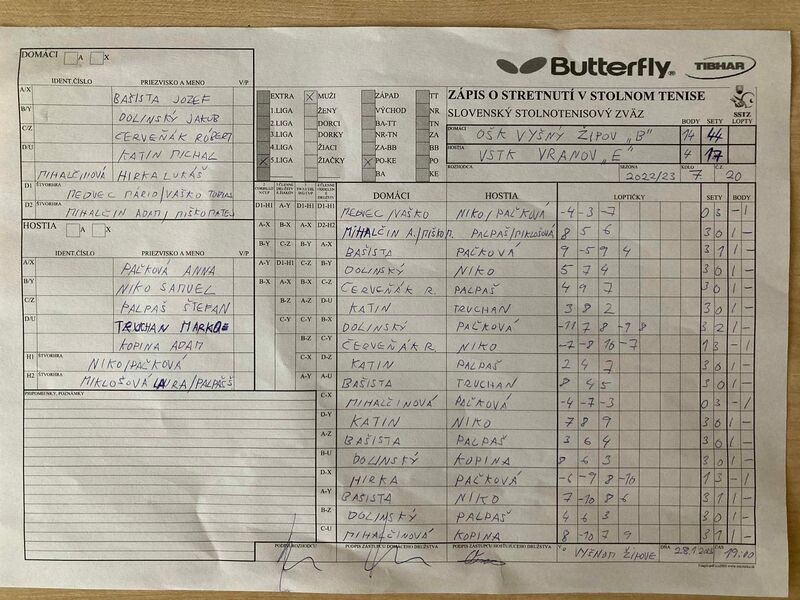 DOMÁCI A X
IDENT.ČÍSLO PRIEZVISKO A MENO V/P
A/X BAŠISTA JOZEF
B/Y DOLINSKÝ JAKUB
C/Z ČERVEŇÁK RÓBERT
D/U KATIN MICHAL
MIHALČINOVÁ HIRKA LUKÁŠ
D1 ŠTVORHRA MEDVEC MÁRIO/VAŠKO TOBIAS
D2 ŠTVORHRA MIHALČIN ADAM/MIŠKO MATEJ
HOSTIA A X
IDENT.ČÍSLO PRIEZVISKO A MENO V/P
A/X PAČKOVÁ ANNA
B/Y NIKO SAMUEL
C/Z PALPAŠ ŠTEFAN
D/U TRUCHAN MARKO
KOPINA ADAM
H1 ŠTVORHRA NIKO/PAČKOVÁ
H2 ŠTVORHRA MIKLOŠOVÁ LAURA/PALPAŠ Š
PRIPOMIENKY, POZNÁMKY
Butterfly TIBHAR
EXTRA X MUŽI ZÁPAD TT
1.LIGA ŽENY VÝCHOD NR
2.LIGA DORCI BA-TT TN
3.LIGA DORKY NR-TN ZA
4.LIGA ŽIACI ZA-BB BB
X 5.LIGA ŽIAČKY X PO-KE PO
BA KE
ZÁPIS O STRETNUTÍ V STOLNOM TENISE
SLOVENSKÝ STOLNOTENISOVÝ ZVÄZ SSTZ
BODY SETY LOPTY
DOMÁCI OŠK VYŠNÝ ŽIPOV „B" 14 44
HOSTIA VSTK VRANOV „E" 4 17
ROZHODCA SEZONA 2022/23 KOLO 7 Č.Z. 20
DOMÁCI HOSTIA LOPTIČKY SETY BODY
D1-H1 A-Y D1-H1 D1-H1 MEDVEC/VAŠKO NIKO/PAČKOVÁ -4 -3 -7 0 3 - 1
A-X B-X A-X D2-H2 MIHALČIN A./MIŠKO M. PALPAŠ/MIKLOŠOVÁ 8 5 6 3 0 1 -
B-Y C-Z B-Y A-X BAŠISTA PAČKOVÁ 9 -5 9 4 3 1 1 -
A-Y D1-H1 C-Z B-Y DOLINSKÝ NIKO 5 7 4 3 0 1 -
B-X A-X B-X C-Z ČERVEŇÁK R. PALPAŠ 4 9 7 3 0 1 -
B-Z A-Z D-U KATIN TRUCHAN 3 8 2 3 0 1 -
C-Y C-Y B-X DOLINSKÝ PAČKOVÁ -11 7 8 -7 8 3 2 1 -
B-Z C-Y ČERVEŇÁK R. NIKO -7 -8 10 -7 1 3 - 1
C-X D-Z KATIN PALPAŠ 2 4 7 3 0 1 -
A-Y A-U BAŠISTA TRUCHAN 8 4 5 3 0 1 -
C-X MIHALČINOVÁ PAČKOVÁ -4 -7 -3 0 3 - 1
D-Y KATIN NIKO 7 8 9 3 0 1 -
A-Z BAŠISTA PALPAŠ 3 6 4 3 0 1 -
B-U DOLINSKÝ KOPINA 8 6 3 3 0 1 -
D-X HIRKA PAČKOVÁ -6 -9 8 -10 1 3 - 1
A-Y BAŠISTA NIKO 7 -10 8 6 3 1 1 -
B-Z DOLINSKÝ PALPAŠ 4 6 3 3 0 1 -
C-U MIHALČINOVÁ KOPINA 8 -10 7 9 3 1 1 -
PODPIS ROZHODCU PODPIS ZÁSTUPCU DOMÁCEHO DRUŽSTVA PODPIS ZÁSTUPCU HOSŤUJÚCEHO DRUŽSTVA VO VYŠNOM ŽIPOVE DŇA ČAS 19.00